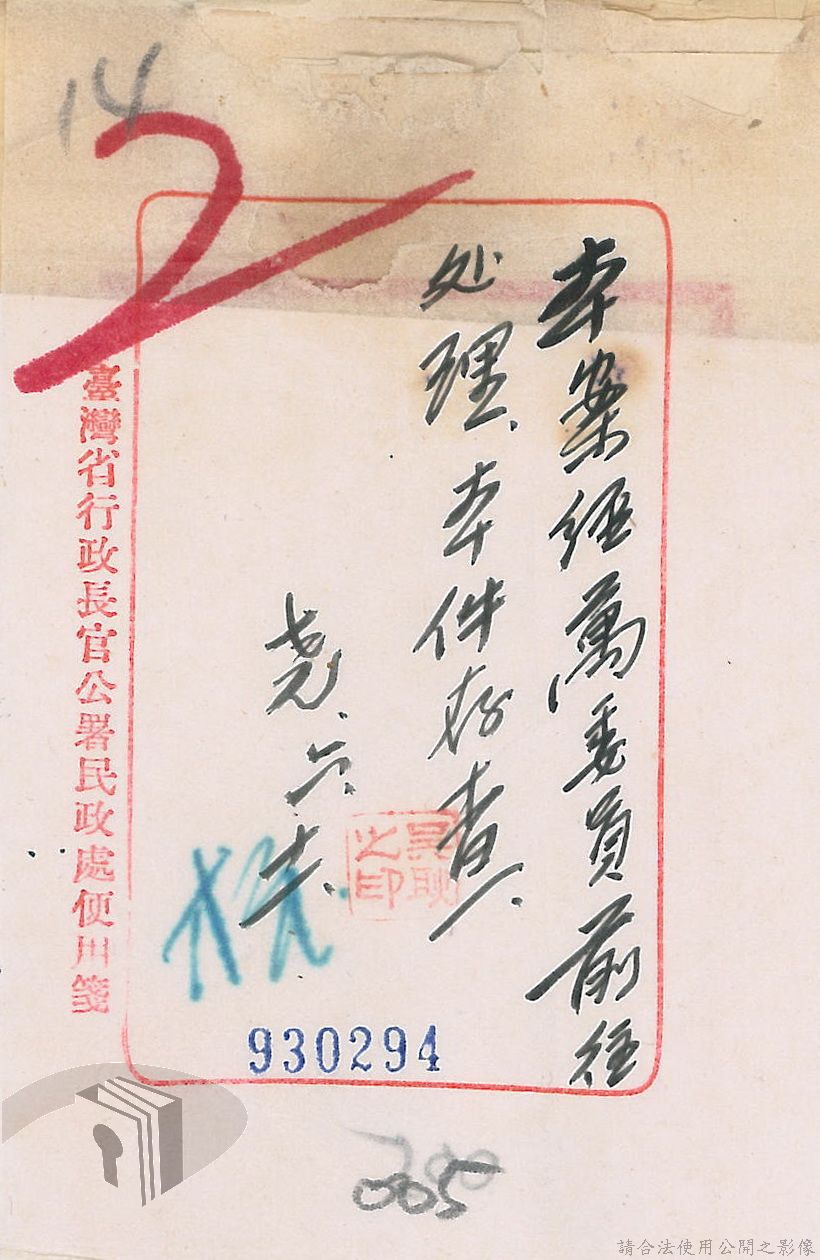 14
2
本案经萬委員前往
处理、本件存查、
堯、六、十六、
臺灣省行政長官公署民政處便用箋
930294
005
請合法使用公開之影像